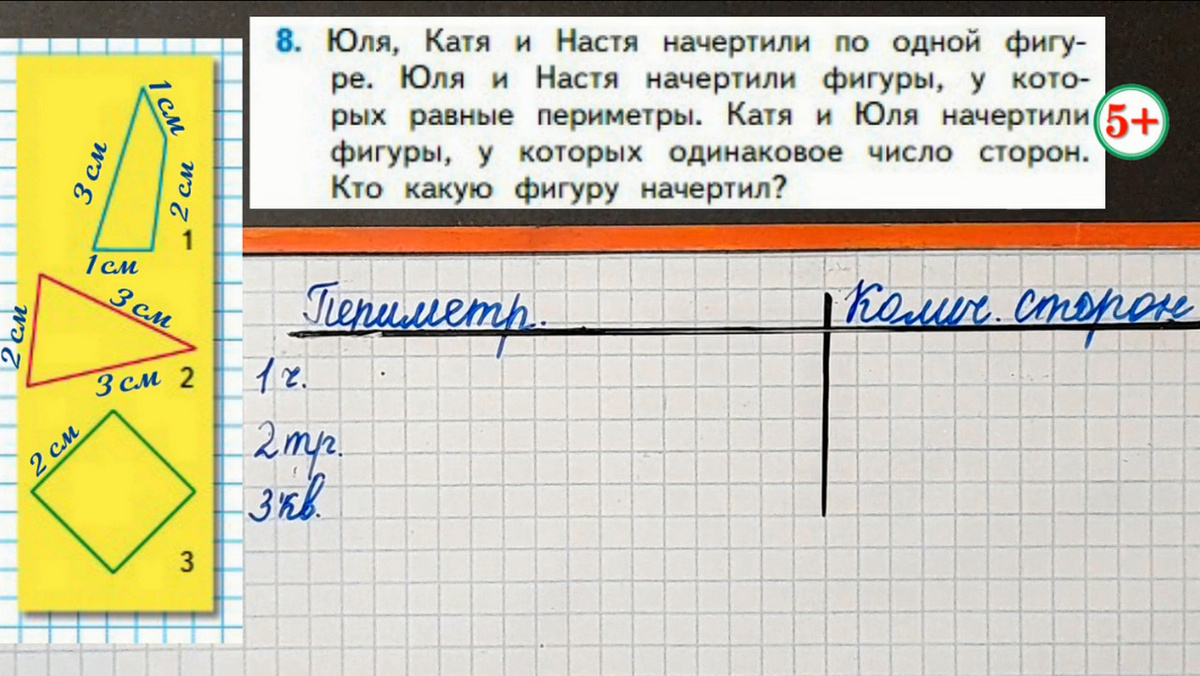 8. Юля, Катя и Настя начертили по одной фигу-
ре. Юля и Настя начертили фигуры, у кото-
рых равные периметры. Катя и Юля начертили
фигуры, у которых одинаковое число сторон.
Кто какую фигуру начертил?
5+
1 см
3 см
2 см
1
1 см
3 см
2 см
3 см
2
2 см
3
Периметр.
Колич. сторон
1 ч.
2 тр.
3 кв.